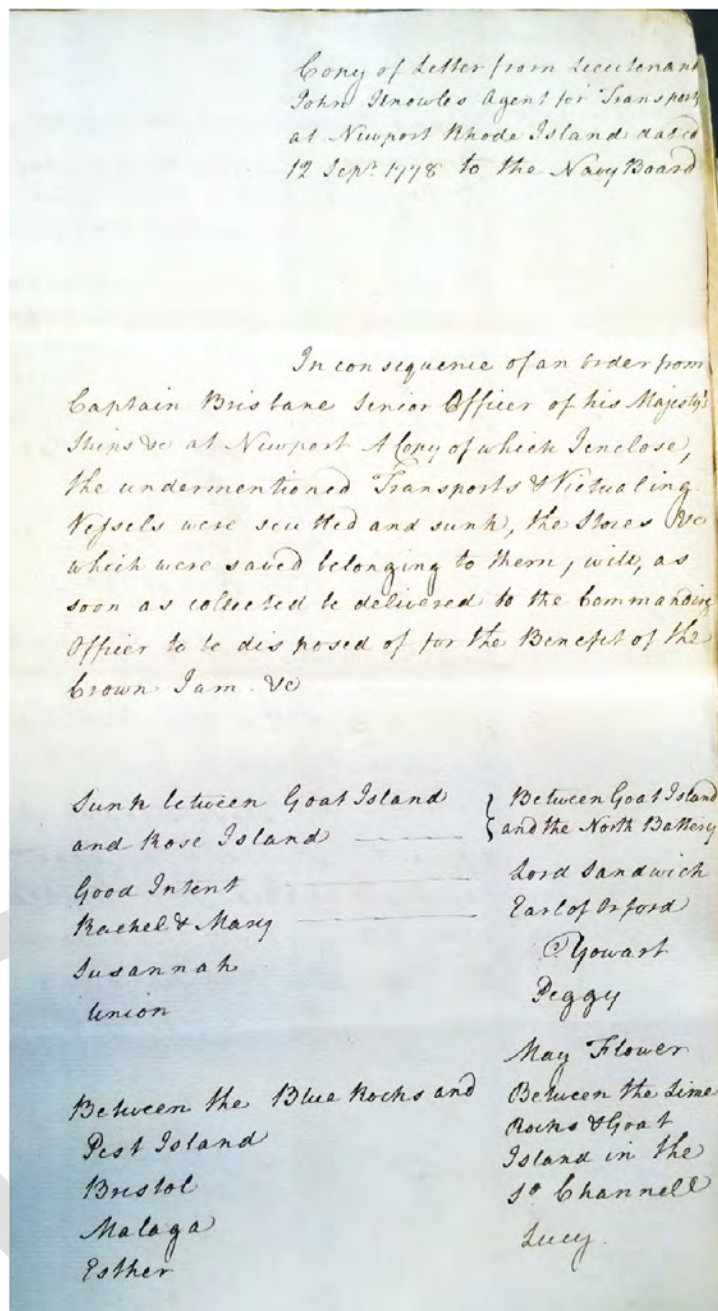 Copy of Letter from Lieutenant
John Knowles Agent for Transports
at Newport Rhode Island dated
12 Sept. 1778 to the Navy Board
In consequence of an order from
Captain Brisbane Senior Officer of his Majesty's
Ships &c at Newport A Copy of which I enclose,
the undermentioned Transports & Victualing
Vessels were scuttled and sunk, the Stores &c
which were saved belonging to them, will, as
soon as collected be delivered to the Commanding
Officer to be disposed of for the Benefit of the
Crown I am &c
Sunk between Goat Island
and Rose Island
Good Intent
Rachel & Mary
Susannah
Union
Between Goat Island
and the North Battery
Lord Sandwich
Earl of Orford
Yowart
Peggy
May Flower
Between the Blue Rocks and
Pest Island
Bristol
Malaga
Esther
Between the Lime
Rocks & Goat
Island in the
So. Channell
Lucy.